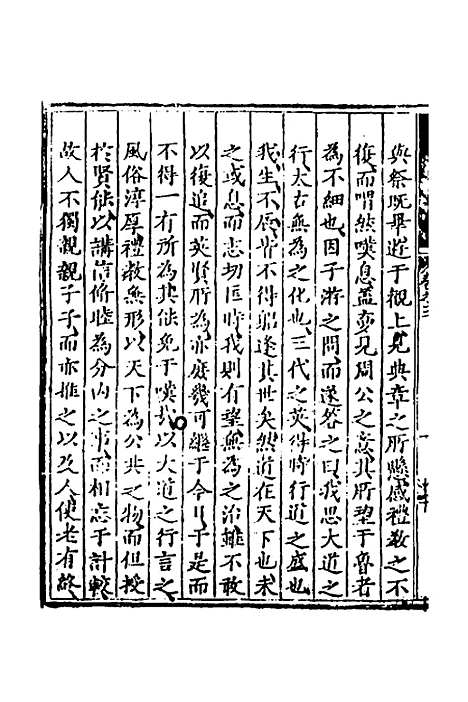 與祭既畢遊于觀上見典章之所懸感禮教之不
復而喟然嘆息蓋夢見周公之意其所望于魯者
為不細也因子游之問而遂答之曰我思大道之
行太古無為之化也三代之英得時行道之盛也
我生不辰皆不得躬逢其世矣然道在天下也未
之或息而志切匡時我則有望無為之治雖不敢
以復追而英賢所為亦庶幾可繼于今日于是而
不得一有所為其能免于嘆哉以大道之行言之
風俗淳厚禮教無形以天下為公共之物而但授
於賢能以講信脩睦為分內之事而相忘于計較
故人不獨親親子子而亦推之以及人使老有終